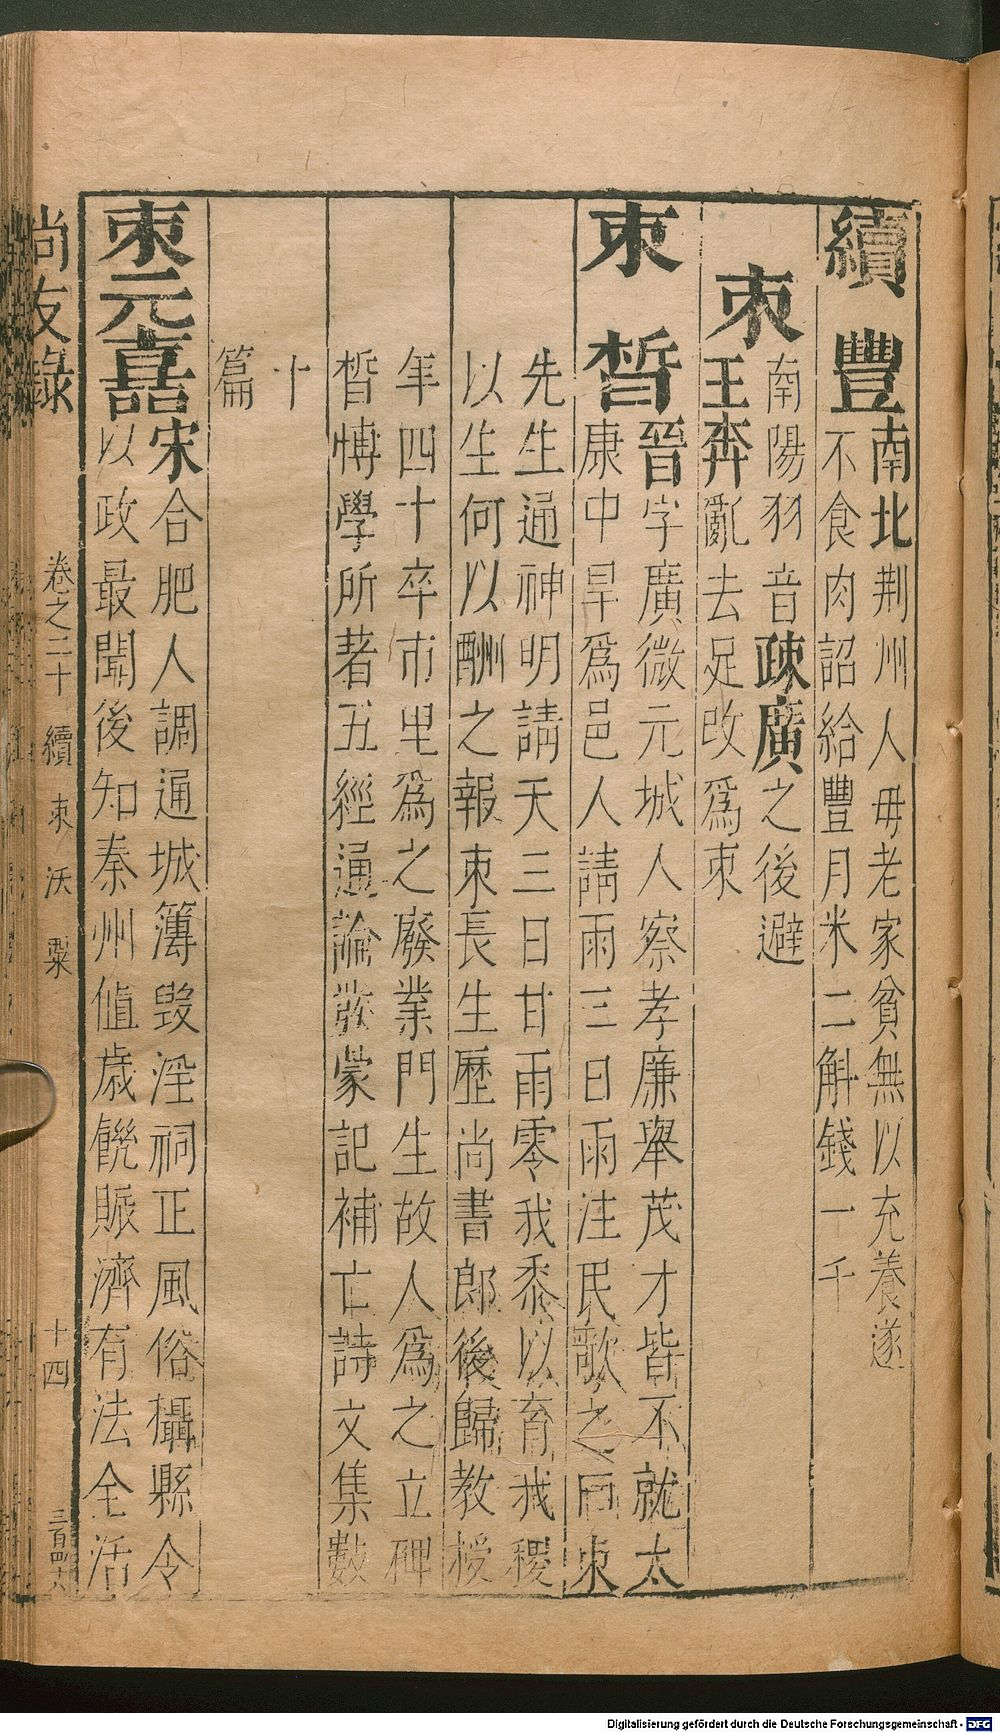 續豐
南北荆州人毋老家貧無以充養遂
不食肉詔給豐月米二斛錢一千
束
南陽羽音疎廣之後避
王莽亂去足改爲束
束晳
晉字廣微元城人察孝廉舉茂才皆不就太
康中旱爲邑人請雨三日雨注民歌之曰束
先生通神明請天三日甘雨零我黍以育我稷
以生何以酬之報束長生歷尚書郎後歸教授
年四十卒市里爲之廢業門生故人爲之立碑
晳博學所著五經通論發蒙記補亡詩文集數
十
篇
束元嘉
宋合肥人調通城簿毀淫祠正風俗攝縣令
以政最聞後知秦州值歲饑賑濟有法全活
尚友錄
卷之二十 續 束 沃 粟
十四
三百四六
Digitalisierung gefördert durch die Deutsche Forschungsgemeinschaft - DFG